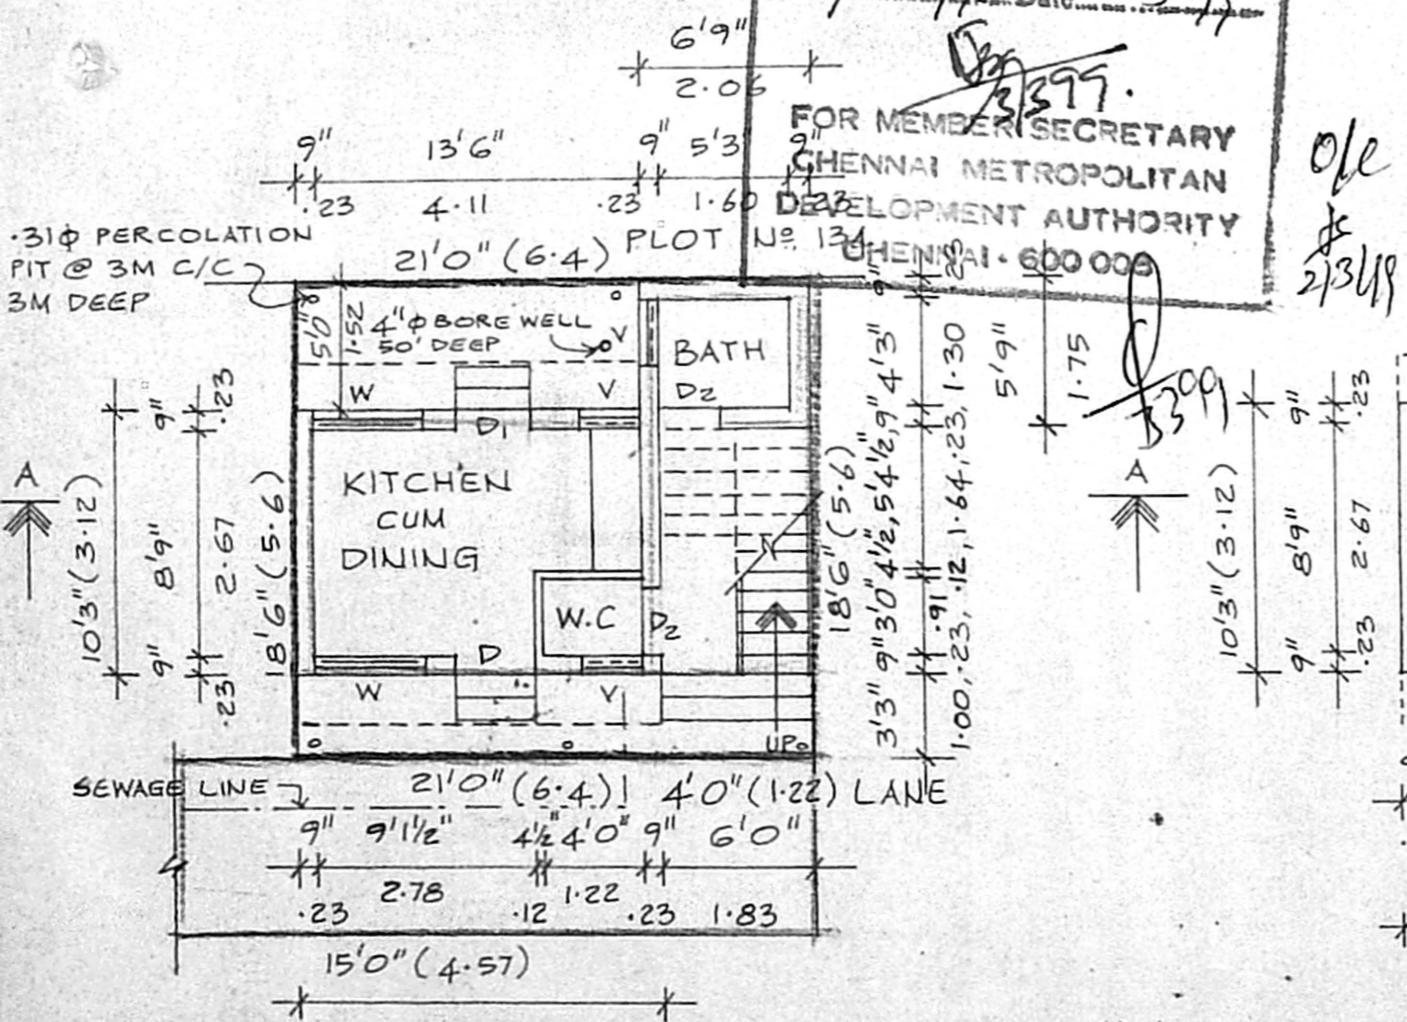 6'9"
2.06
3/3/99.
FOR MEMBER SECRETARY
CHENNAI METROPOLITAN
DEVELOPMENT AUTHORITY
CHENNAI - 600 008
9" 13'6" 9" 5'3" 9"
.23 4.11 .23 1.60 .23
.31φ PERCOLATION
PIT @ 3M C/C
3M DEEP
21'0" (6.4)
PLOT Nº 134
5'0"
1.52
4"φ BORE WELL
50' DEEP
V
BATH
D2
W
V
D1
KITCHEN
CUM
DINING
W.C
D2
D
W
V
UP
A
10'3" (3.12)
9" 8'9" 9"
.23 2.67 .23
18'6" (5.6)
18'6" (5.6)
3'3" 9" 3'0" 4½", 5'4½", 9" 4'3" 9"
1.00, .23, .91, .12, 1.64, .23, 1.30 .23
5'9"
1.75
3/3/99
A
10'3" (3.12)
9" 8'9" 9"
.23 2.67 .23
SEWAGE LINE
21'0" (6.4)
4'0" (1.22) LANE
9" 9'1½" 4½" 4'0" 9" 6'0"
.23 2.78 .12 1.22 .23 1.83
15'0" (4.57)